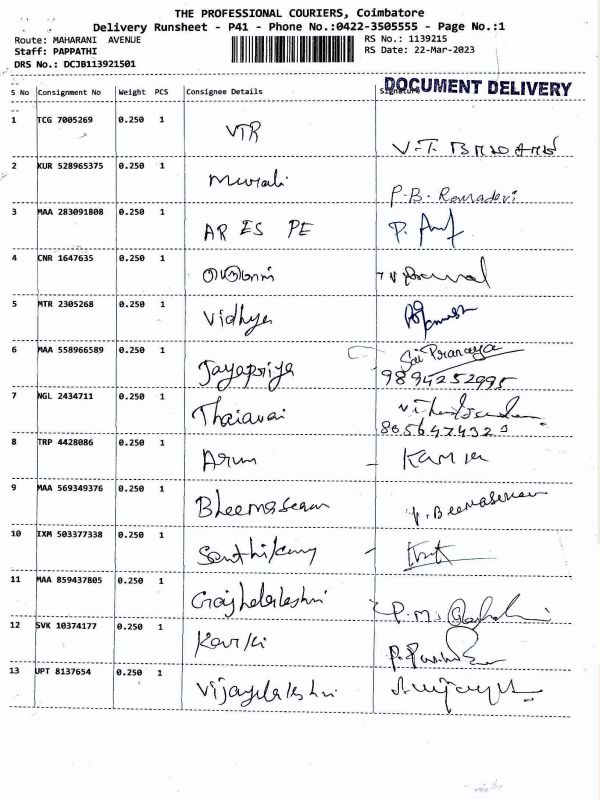 THE PROFESSIONAL COURIERS, Coimbatore
Delivery Runsheet - P41 - Phone No.:0422-3505555 - Page No.:1
Route: MAHARANI AVENUE
RS No.: 1139215
Staff: PAPPATHI
RS Date: 22-Mar-2023
DRS No.: DCJB113921501
DOCUMENT DELIVERY
S No Consignment No Weight PCS Consignee Details Signature
1 TCG 7005269 0.250 1 VTR
2 KUR 528965375 0.250 1 Murali P.B. Ramadevi
3 MAA 283091808 0.250 1 AR ES PE
4 CNR 1647635 0.250 1
5 MTR 2305268 0.250 1 Vidhya
6 MAA 558966589 0.250 1 Jayapriya Sai Pranaya
9894252995
7 NGL 2434711 0.250 1 Thaiavai
8056474320
8 TRP 4428086 0.250 1 Arun
9 MAA 569349376 0.250 1 Bheemasenan P. Beemasenan
10 IXM 503377338 0.250 1
11 MAA 859437805 0.250 1
12 SVK 10374177 0.250 1
13 UPT 8137654 0.250 1